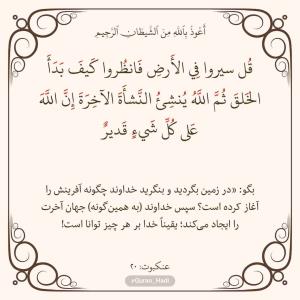 أَعُوذُ بِٱللَّهِ مِنَ ٱلشَّيْطَانِ ٱلرَّجِيمِ
قُل سيروا فِي الأَرضِ فَانظُروا كَيفَ بَدَأَ
الخَلقَ ثُمَّ اللَّهُ يُنشِئُ النَّشأَةَ الآخِرَةَ إِنَّ اللَّهَ
عَلى كُلِّ شَيءٍ قَديرٌ
بگو: «در زمین بگردید و بنگرید خداوند چگونه آفرینش را
آغاز کرده است؟ سپس خداوند (به همین‌گونه) جهان آخرت
را ایجاد می‌کند؛ یقیناً خدا بر هر چیز توانا است!
عنکبوت: ۲۰
@Quran_Hadi